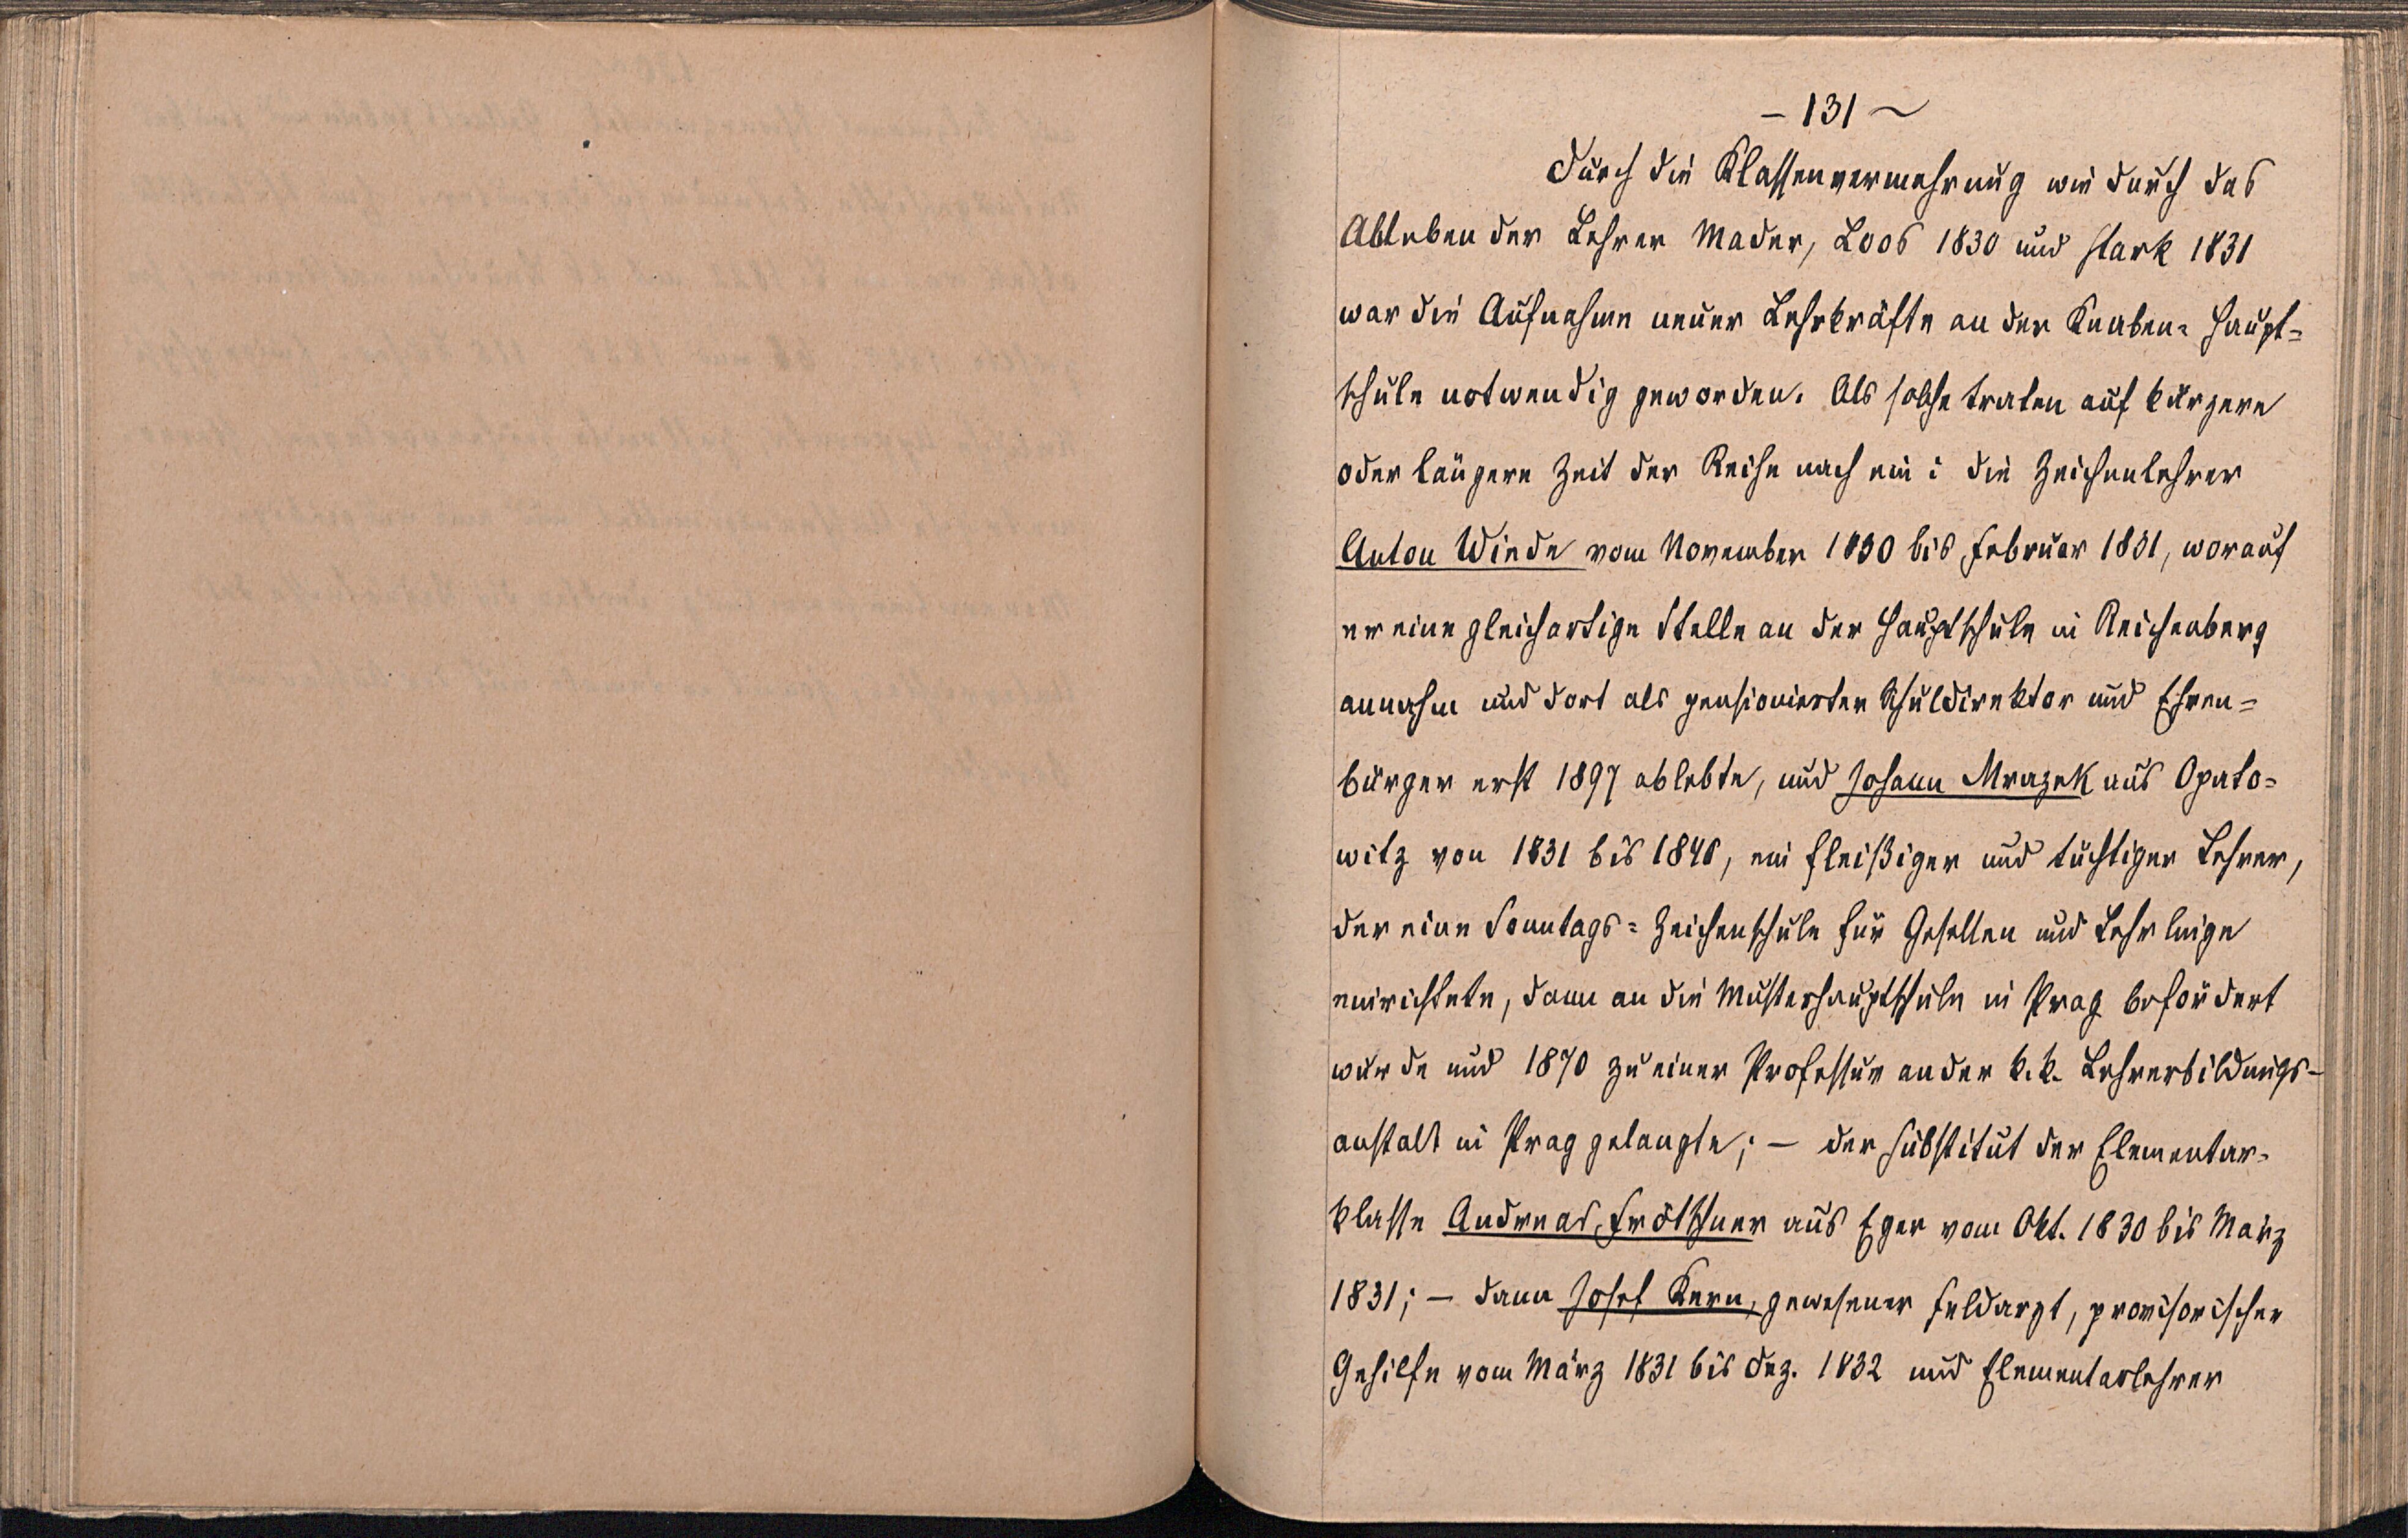 – 131 ~
Durch die Klassenvermehrung wie durch das
Ableben der Lehrer Mader, Loos 1830 und Stark 1831
war die Aufnahme neuer Lehrkräfte an der Knaben= Haupt=
schule notwendig geworden. Als solche traten auf kürzere
oder längere Zeit der Reihe nach ein: die Zeichenlehrer
Anton Winde vom November 1830 bis Februar 1831, worauf
er eine gleichartige Stelle an der Hauptschule in Reichenberg
annahm und dort als pensionierter Schuldirektor und Ehren=
bürger erst 1897 ablebte, und Johann Mrazek aus Opato=
witz von 1831 bis 1840, ein fleißiger und tüchtiger Lehrer,
der eine Sonntags= Zeichenschule für Gesellen und Lehrlinge
einrichtete, dann an die Musterhauptschule in Prag befördert
wurde und 1870 zu einer Professur an der k.k. Lehrerbildungs-
anstalt in Prag gelangte; – der Substitut der Elementar=
klasse Andreas Frötschner aus Eger vom Okt. 1830 bis März
1831; – dann Josef Kern, gewesener Feldarzt, provisorischer
Gehilfe vom März 1831 bis Dez. 1832 und Elementarlehrer